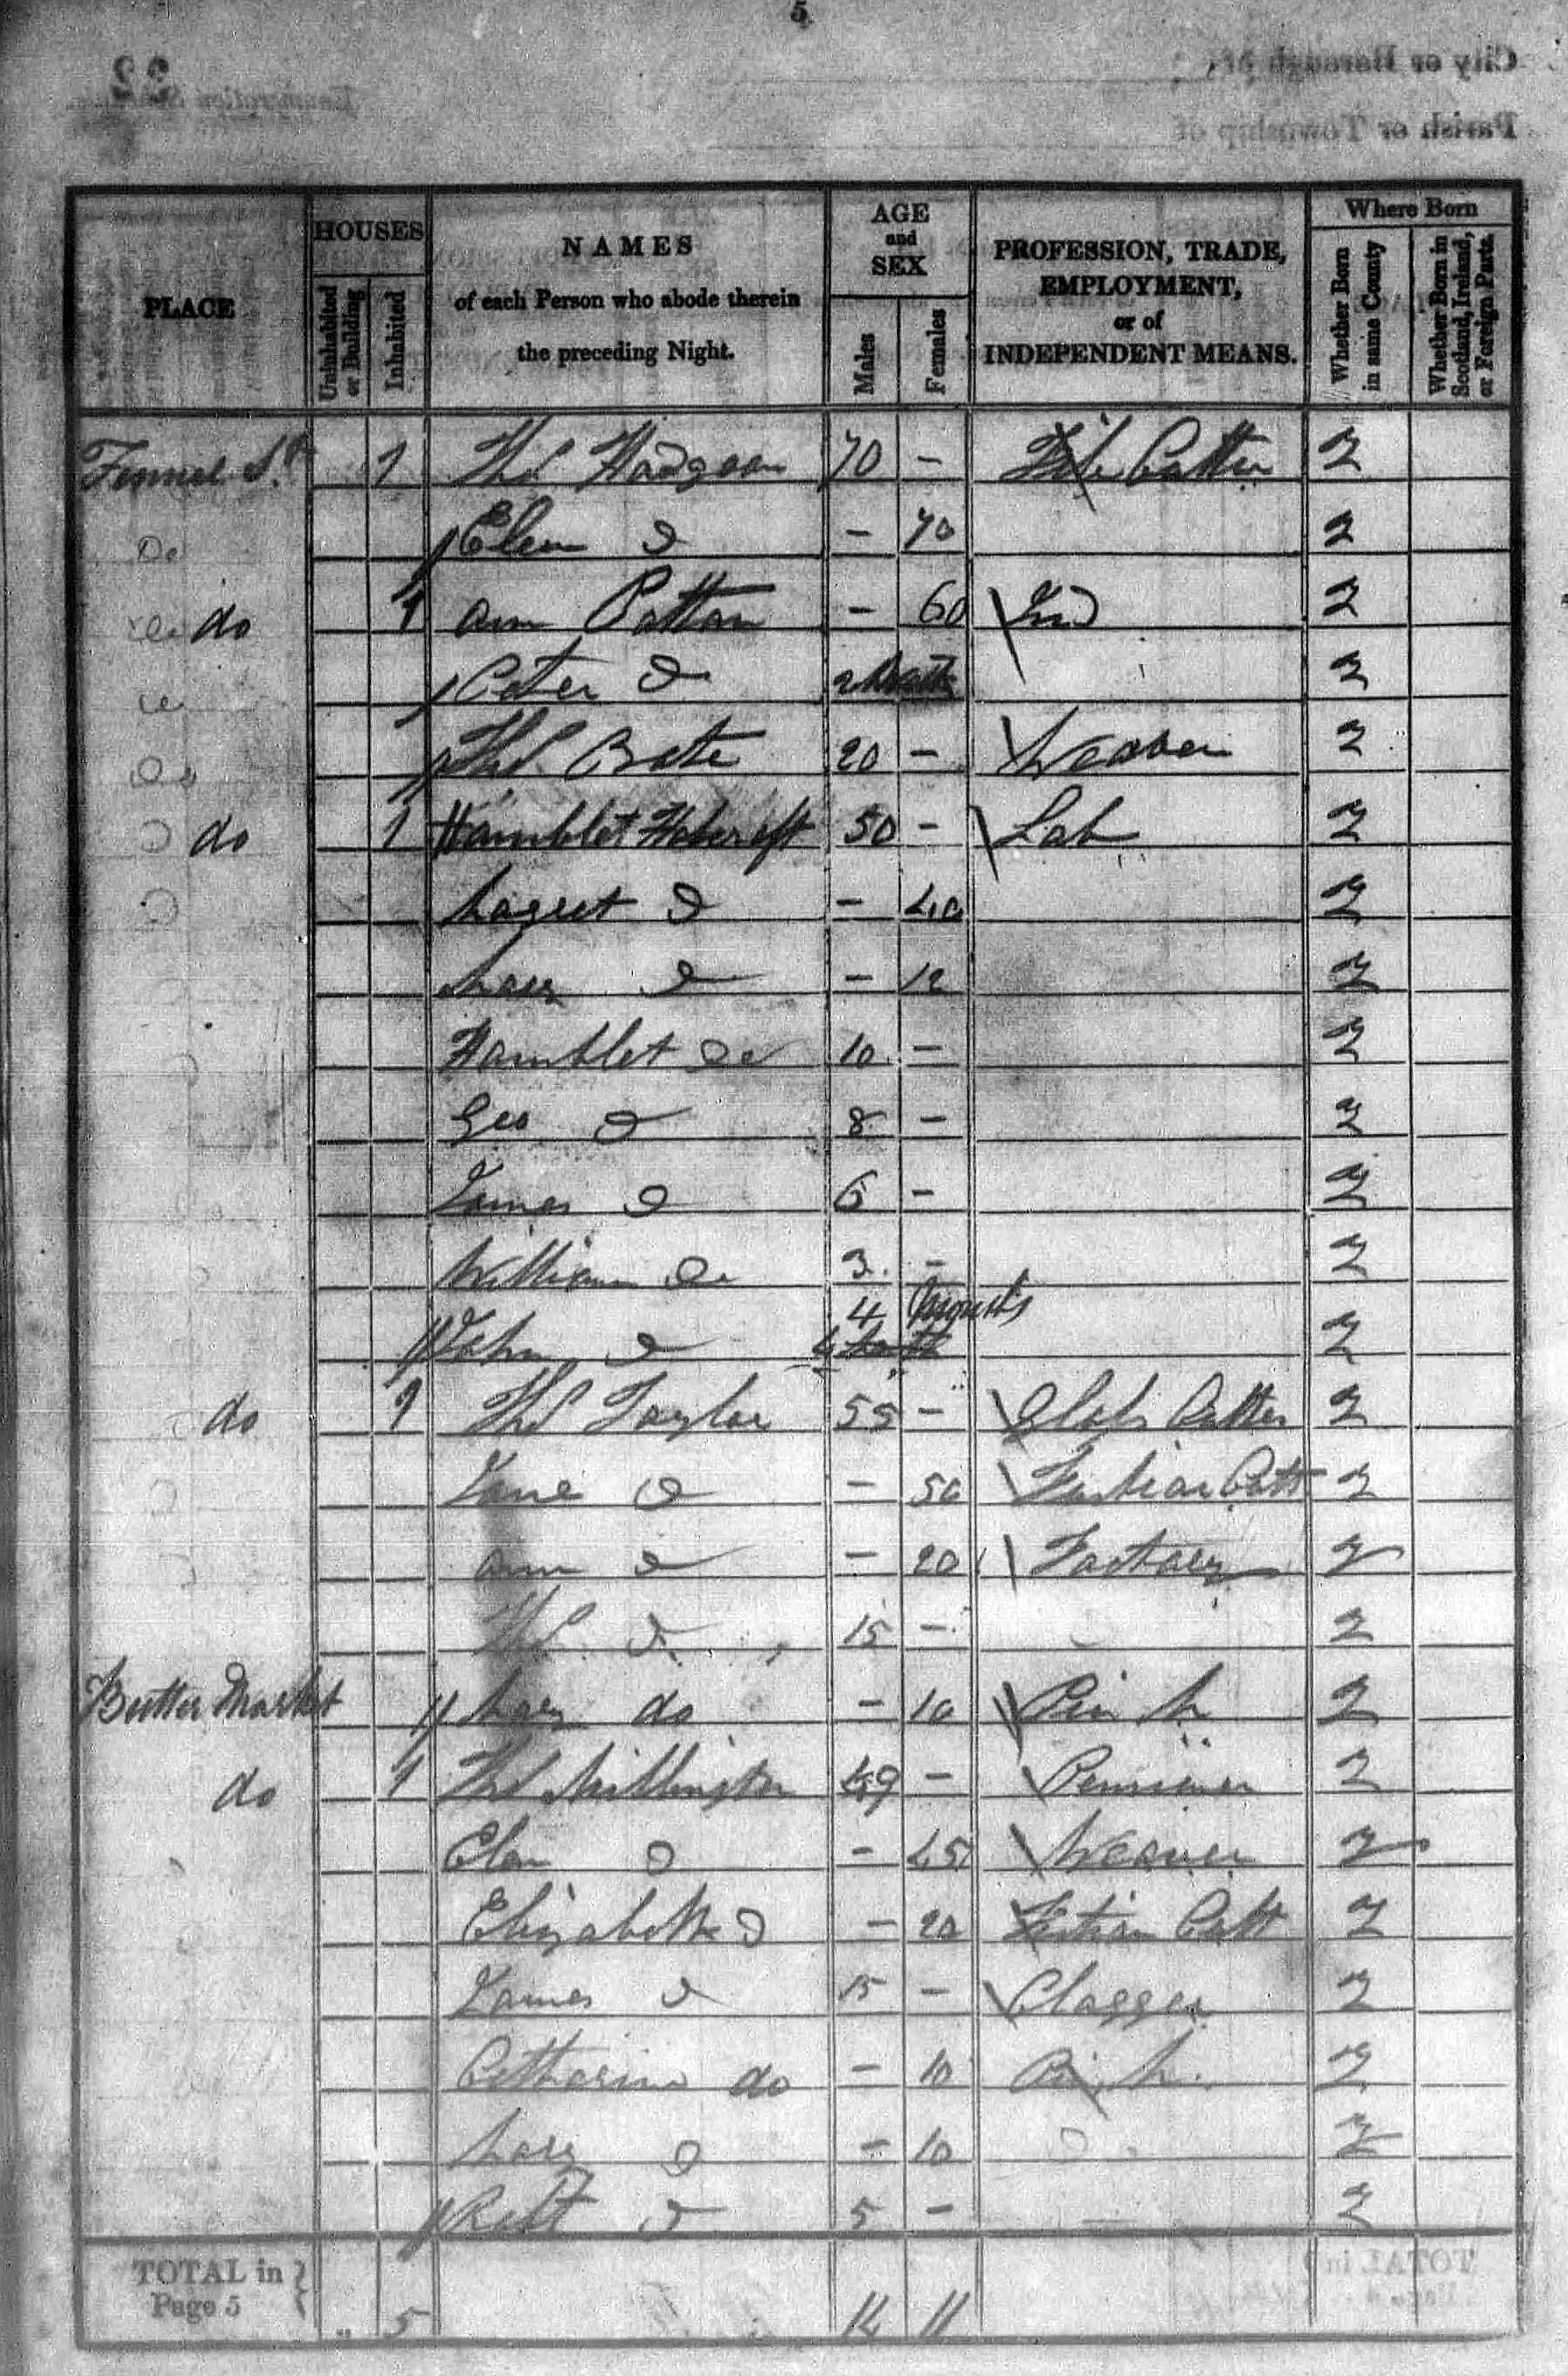 5
PLACE
HOUSES
Uninhabited or Building
Inhabited
NAMES
of each Person who abode therein
the preceding Night.
AGE
and
SEX
Males
Females
PROFESSION, TRADE,
EMPLOYMENT,
or of
INDEPENDENT MEANS.
Where Born
Whether Born in same County
Whether Born in Scotland, Ireland, or Foreign Parts.
Fennel St. 1 Thos Hodgson 70 - File Cutter
Elen Do - 70
do 1 Ann Patton - 60 Ind
Peter Do
Thos Bate 20 - Weaver
do 1 Hamblet Holcroft 50 - Lab
Do - 40
Mary Do - 12
Hamblet Do 10 -
Geo Do 8 -
James Do 6 -
William Do 3 -
John Do 4 Months
do 1 Thos Taylor 55 - Cutter
Jane Do - 50 Fustian Cutt
Ann Do - 20 Factory
Thos Do 15 -
Butter Market Mary do - 10 Pin M
do 1 Thos Millington 49 - Pensioner
Elen Do - 45 Weaver
Elizabeth Do - 20 Fustian Cutt
James Do 15 - Clogger
Catharine do - 10 Pin M.
Mary Do - 10 Do
Robt Do 5 -
TOTAL in Page 5 5 14 11